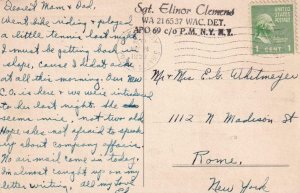 Dearest Mom & Dad,
Went bike riding & played
a little tennis last night
I must be getting back in
shape, cause I didn't ache
at all this morning. Our new
C.O. is here & we were introduced
to her last night. She
seems nice, not two old
Hope she not afraid to speak
up about company affairs.
No air mail came in today,
Im almost caught up on my
letter writing. All my love
Sgt. Elinor Clemons
WA 216537 WAC. DET.
APO 69 c/o P.M. N.Y. N.Y.
UNITED STATES
POSTAGE
1 CENT 1
Mr & Mrs E. G. Whitmeyer
1112 N Madison St
Rome,
New York